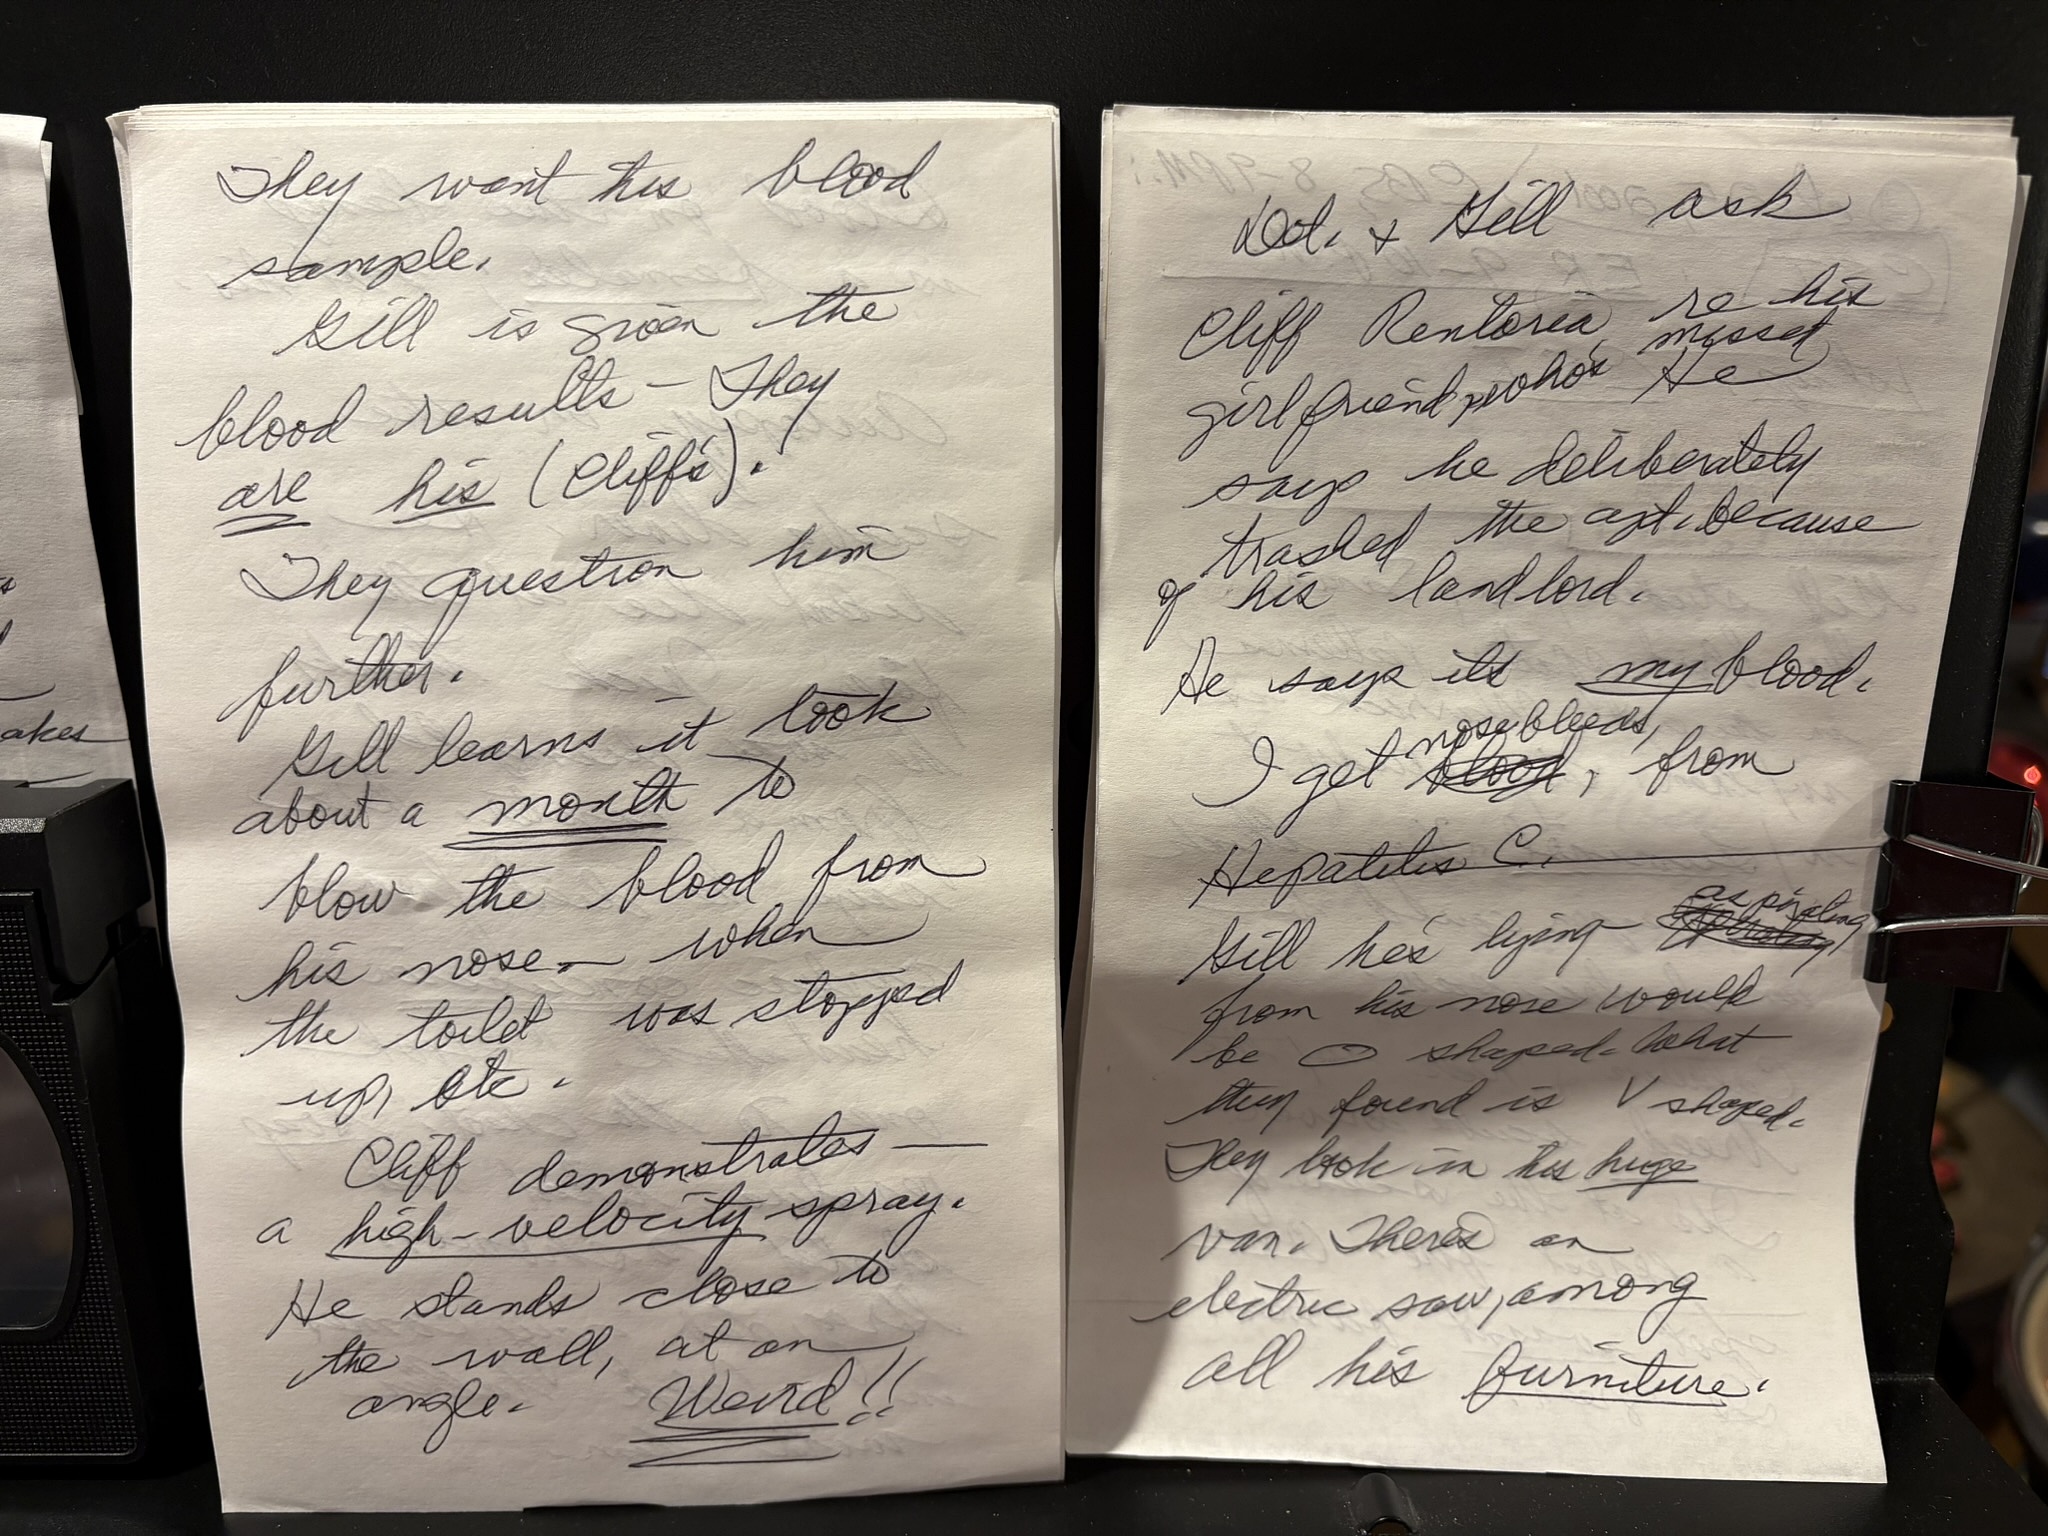 They want his blood
sample.
Gill is given the
blood results — They
are his (Cliff's).
They question him
further.
Gill learns it took
about a month to
blow the blood from
his nose — when
the toilet was stopped
up, etc.
Cliff demonstrates —
a high-velocity spray.
He stands close to
the wall, at an
angle. Weird!!
Dot. & Gill ask
Cliff Rentoria re his
girlfriend, who's missed
He
says he deliberately
trashed the apt. because
of his landlord.
He says its my blood.
I get nosebleeds, from
Hepatitis C.
Gill he's lying aspirating
from his nose would
be O shaped. What
they found is V shaped.
They look in his huge
van. There's an
electric saw, among
all his furniture.
akes